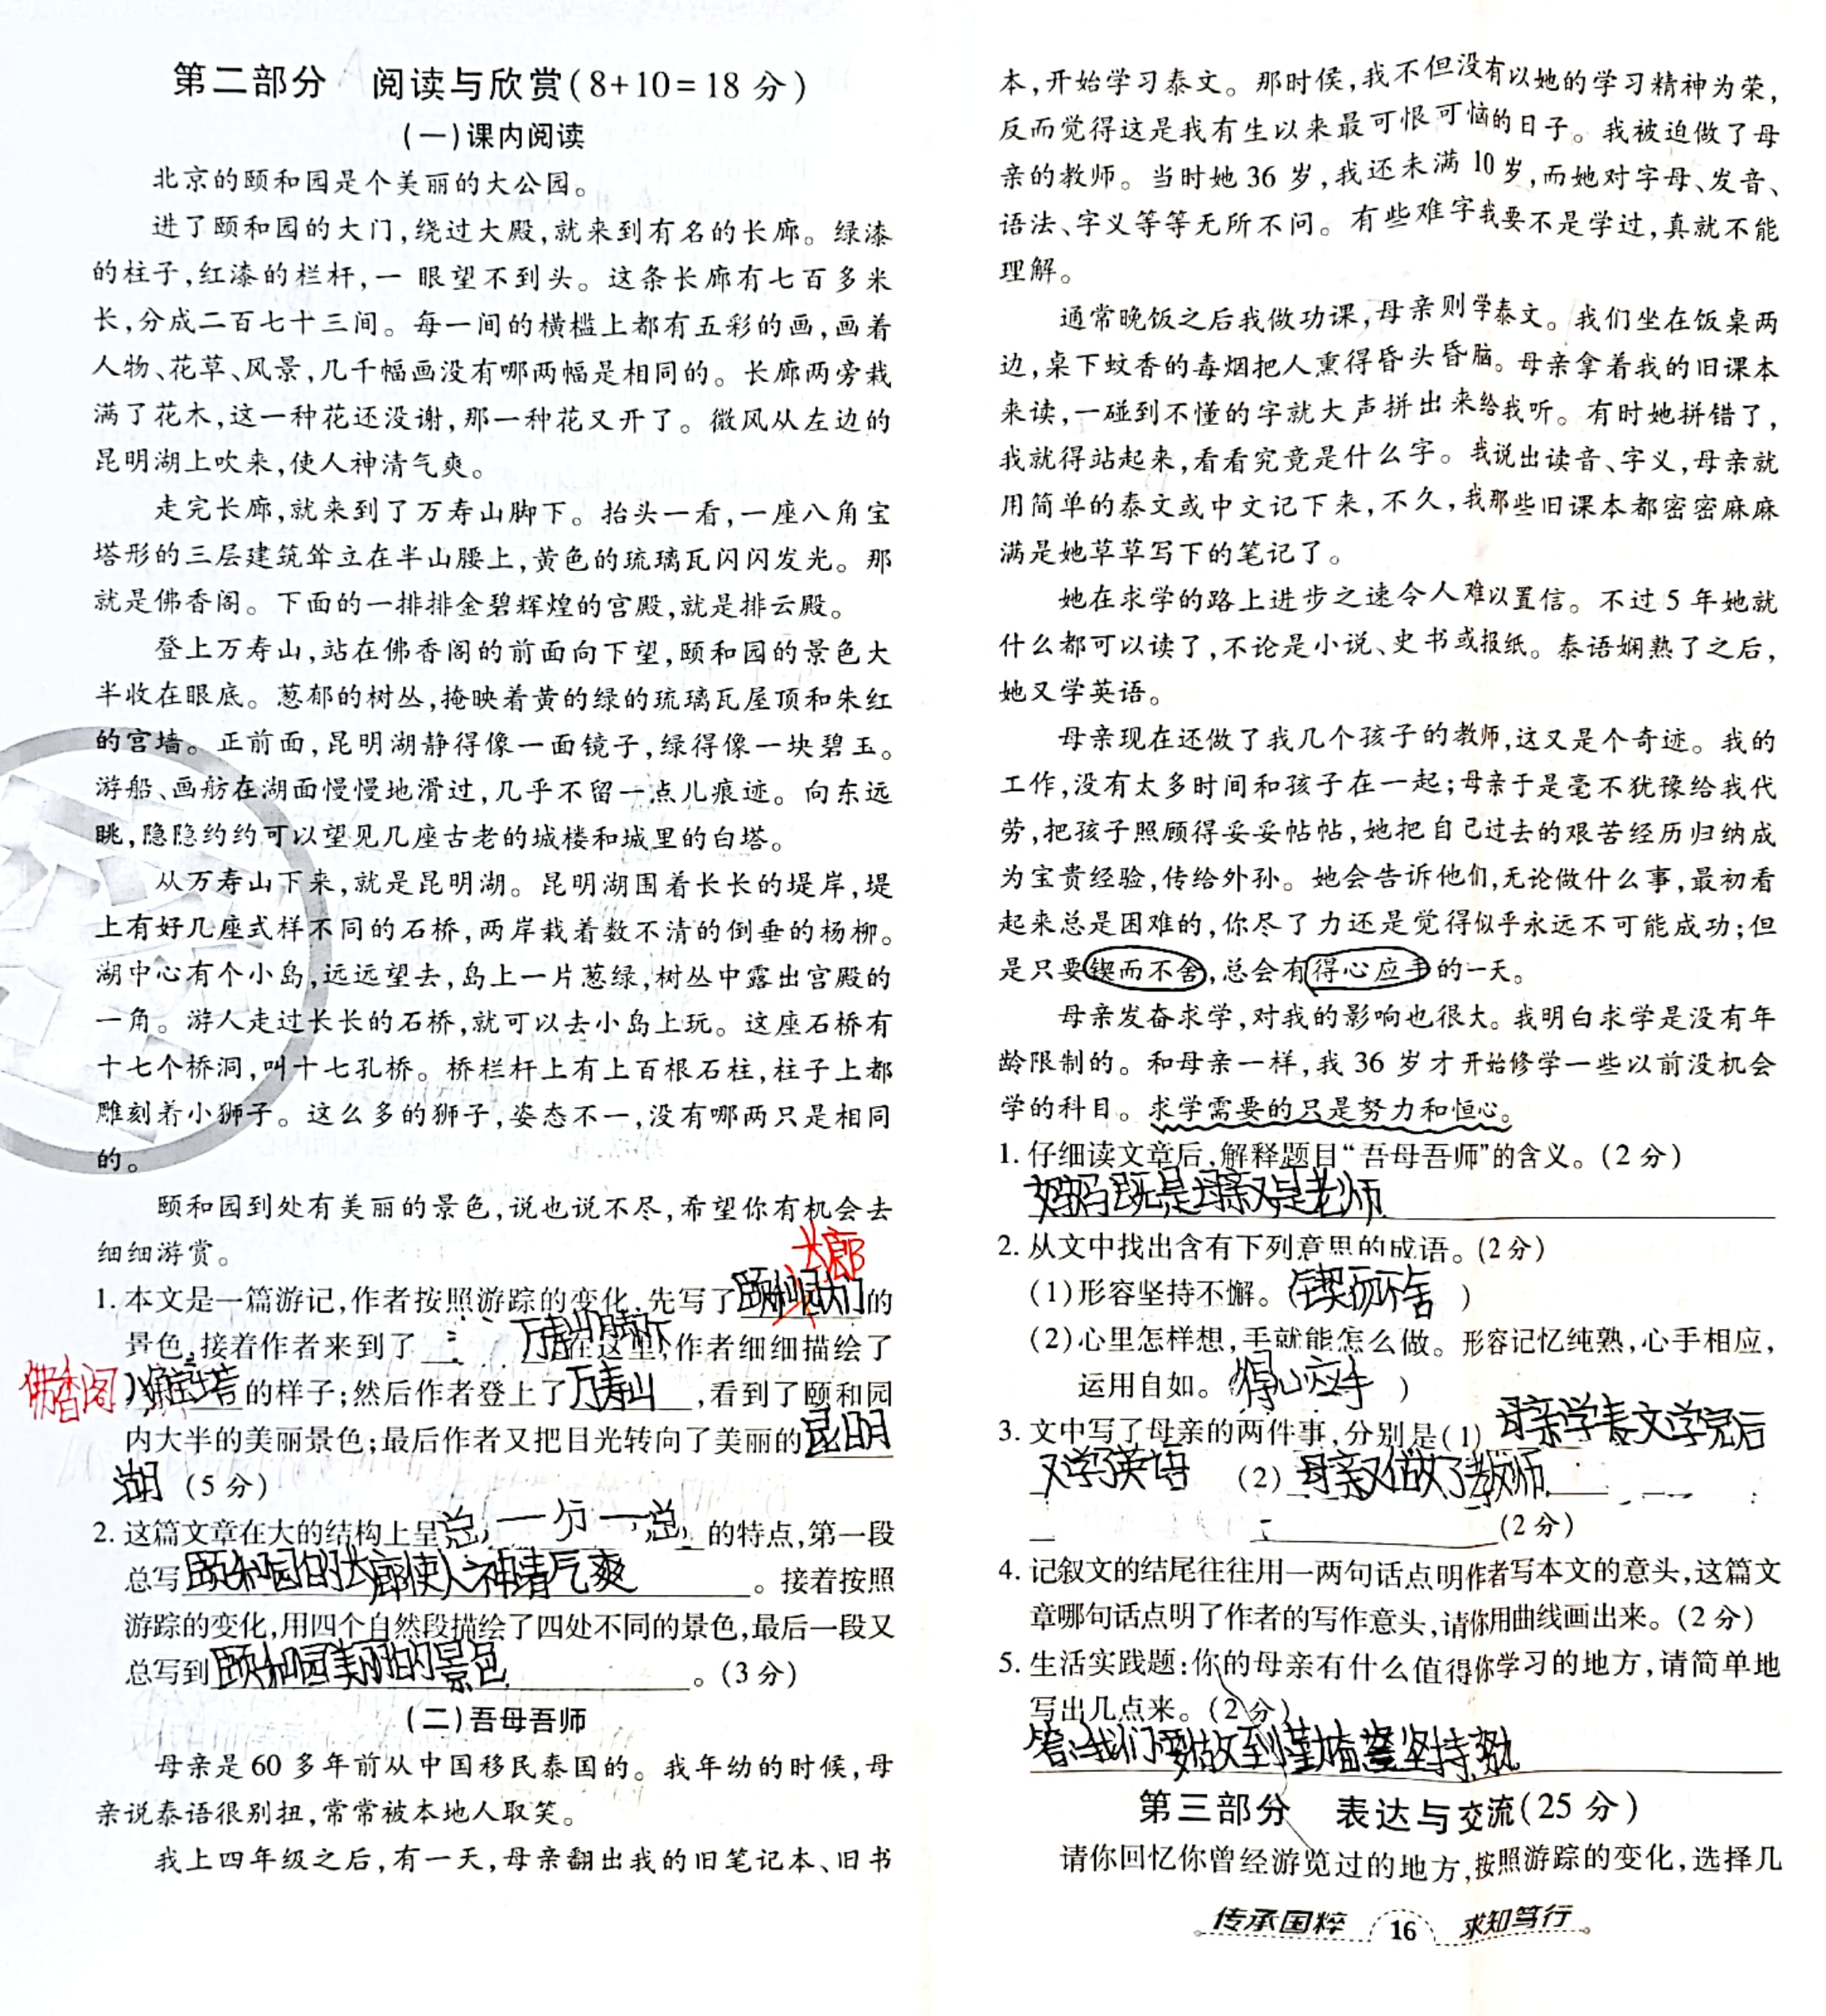 第二部分 阅读与欣赏(8+10=18分)
(一)课内阅读
北京的颐和园是个美丽的大公园。
进了颐和园的大门,绕过大殿,就来到有名的长廊。绿漆
的柱子,红漆的栏杆,一眼望不到头。这条长廊有七百多米
长,分成二百七十三间。每一间的横槛上都有五彩的画,画着
人物、花草、风景,几千幅画没有哪两幅是相同的。长廊两旁栽
满了花木,这一种花还没谢,那一种花又开了。微风从左边的
昆明湖上吹来,使人神清气爽。
走完长廊,就来到了万寿山脚下。抬头一看,一座八角宝
塔形的三层建筑耸立在半山腰上,黄色的琉璃瓦闪闪发光。那
就是佛香阁。下面的一排排金碧辉煌的宫殿,就是排云殿。
登上万寿山,站在佛香阁的前面向下望,颐和园的景色大
半收在眼底。葱郁的树丛,掩映着黄的绿的琉璃瓦屋顶和朱红
的宫墙。正前面,昆明湖静得像一面镜子,绿得像一块碧玉。
游船、画舫在湖面慢慢地滑过,几乎不留一点儿痕迹。向东远
眺,隐隐约约可以望见几座古老的城楼和城里的白塔。
从万寿山下来,就是昆明湖。昆明湖围着长长的堤岸,堤
上有好几座式样不同的石桥,两岸栽着数不清的倒垂的杨柳。
湖中心有个小岛,远远望去,岛上一片葱绿,树丛中露出宫殿的
一角。游人走过长长的石桥,就可以去小岛上玩。这座石桥有
十七个桥洞,叫十七孔桥。桥栏杆上有上百根石柱,柱子上都
雕刻着小狮子。这么多的狮子,姿态不一,没有哪两只是相同
的。
颐和园到处有美丽的景色,说也说不尽,希望你有机会去
细细游赏。
长廊
1. 本文是一篇游记,作者按照游踪的变化,先写了颐和园大门的
景色,接着作者来到了万寿山脚下在这里,作者细细描绘了
佛香阁 八角宝塔的样子;然后作者登上了万寿山,看到了颐和园
内大半的美丽景色;最后作者又把目光转向了美丽的昆明
湖 (5分)
2. 这篇文章在大的结构上呈总一分一总的特点,第一段
总写颐和园的长廊使人神清气爽。接着按照
游踪的变化,用四个自然段描绘了四处不同的景色,最后一段又
总写到颐和园美丽的景色。(3分)
(二)吾母吾师
母亲是60多年前从中国移民泰国的。我年幼的时候,母
亲说泰语很别扭,常常被本地人取笑。
我上四年级之后,有一天,母亲翻出我的旧笔记本、旧书
本,开始学习泰文。那时侯,我不但没有以她的学习精神为荣,
反而觉得这是我有生以来最可恨可恼的日子。我被迫做了母
亲的教师。当时她36岁,我还未满10岁,而她对字母、发音、
语法、字义等等无所不问。有些难字我要不是学过,真就不能
理解。
通常晚饭之后我做功课,母亲则学泰文。我们坐在饭桌两
边,桌下蚊香的毒烟把人熏得昏头昏脑。母亲拿着我的旧课本
来读,一碰到不懂的字就大声拼出来给我听。有时她拼错了,
我就得站起来,看看究竟是什么字。我说出读音、字义,母亲就
用简单的泰文或中文记下来,不久,我那些旧课本都密密麻麻
满是她草草写下的笔记了。
她在求学的路上进步之速令人难以置信。不过5年她就
什么都可以读了,不论是小说、史书或报纸。泰语娴熟了之后,
她又学英语。
母亲现在还做了我几个孩子的教师,这又是个奇迹。我的
工作,没有太多时间和孩子在一起;母亲于是毫不犹豫给我代
劳,把孩子照顾得妥妥帖帖,她把自己过去的艰苦经历归纳成
为宝贵经验,传给外孙。她会告诉他们,无论做什么事,最初看
起来总是困难的,你尽了力还是觉得似乎永远不可能成功;但
是只要锲而不舍,总会有得心应手的一天。
母亲发奋求学,对我的影响也很大。我明白求学是没有年
龄限制的。和母亲一样,我36岁才开始修学一些以前没机会
学的科目。求学需要的只是努力和恒心。
1. 仔细读文章后,解释题目“吾母吾师”的含义。(2分)
妈妈既是母亲又是老师
2. 从文中找出含有下列意思的成语。(2分)
(1)形容坚持不懈。(锲而不舍)
(2)心里怎样想,手就能怎么做。形容记忆纯熟,心手相应,
运用自如。(得心应手)
3. 文中写了母亲的两件事,分别是(1)母亲学泰文学完后
又学了英语 (2)母亲又做了教师
(2分)
4. 记叙文的结尾往往用一两句话点明作者写本文的意头,这篇文
章哪句话点明了作者的写作意头,请你用曲线画出来。(2分)
5. 生活实践题:你的母亲有什么值得你学习的地方,请简单地
写出几点来。(2分)
答:我们要做到勤奋坚持努
第三部分 表达与交流(25分)
请你回忆你曾经游览过的地方,按照游踪的变化,选择几
传承国粹 16 求知笃行